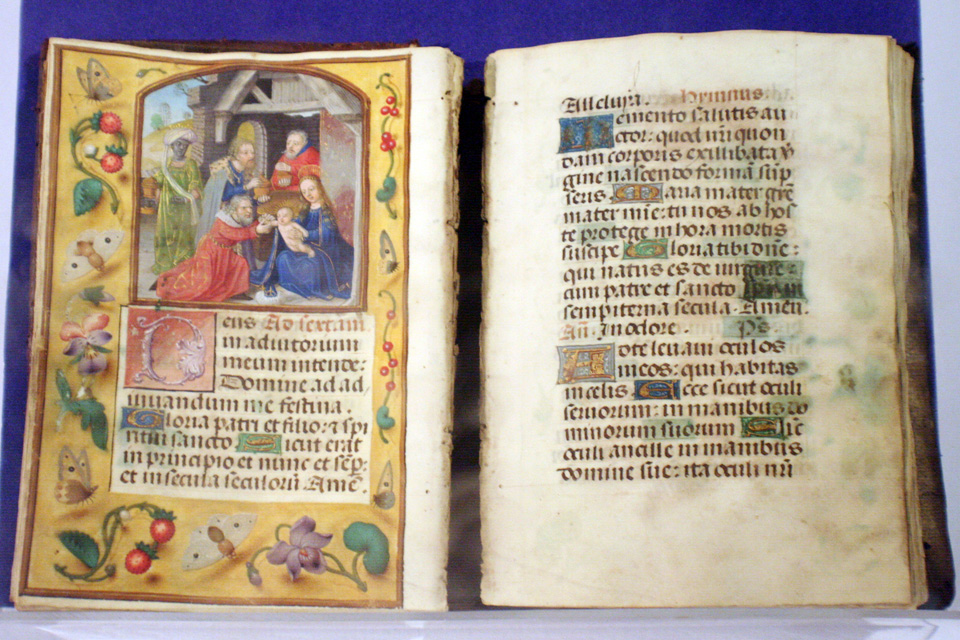 Deus Ad sextam
in adiutorium
meum intende:
Domine ad ad
iuuandum me festina.
Gloria patri et filio: et spi
ritui sancto Sicut erat
in principio et nunc et sēp:
et in secula seculorū Amē.
Alleluya. hymnus.
Memento salutis au
ctor: quod nr̄i quon
dam corporis ex illibata v
gine nascendo formā sūp
seris Maria mater gr̄e
mater mīe: tu nos ab hos
te protege in hora mortis
suscipe Gloria tibi dn̄e:
qui natus es de uirgine
cum patre et sancto spū in
sempiterna secula. Amen.
An̄. In odore. Ps
Ad te leuaui oculos
meos: qui habitas
in celis Ecce sicut oculi
seruorum: in manibus do
minorum suorum Sic
oculi ancille in manibus
domine sue: ita oculi nr̄i